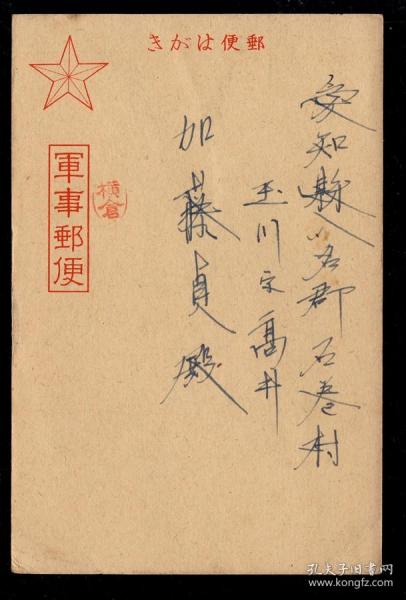 きがは便郵
愛知縣八名郡石巻村
玉川字高井
加藤貞殿
横倉
軍事郵便
孔夫子旧书网
www.kongfz.com